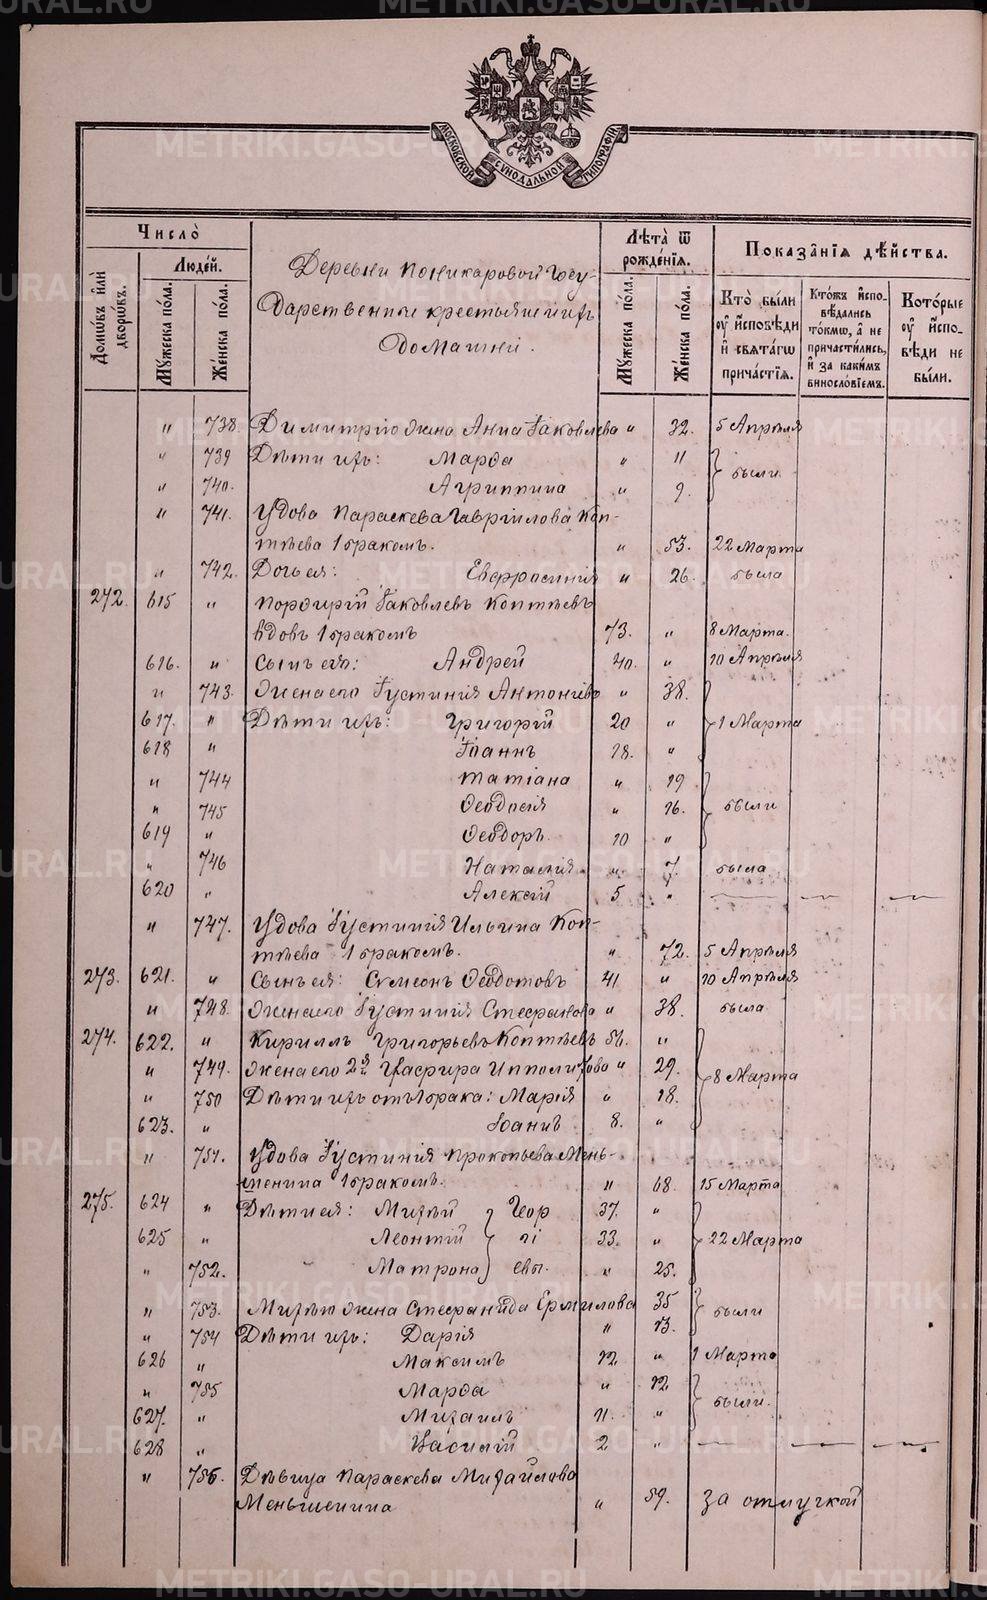 МОСКОВСКОЙ СѴНОДАЛЬНОЙ ТИПОГРАФІИ
Число̀
Домѡвъ и҆лѝ дворѡвъ.
Люде́й.
Мꙋжеска по́ла.
Же́нска по́ла.
Деревни Поникаровой Госу-
дарственные крестьяне и ихъ
домашніи.
Лѣта̀ ѿ рожде́нїѧ.
Мꙋжеска по́ла.
Же́нска по́ла.
Показа̑нїѧ дѣ́йства.
Кто̀ бы́ли ᲂу҆ и҆сповѣди и҆ свѧта́гѡ причастїѧ.
Кто́жъ и҆спо-вѣдались то́кмѡ, а҆ не причасти́лись, и҆ за каки́мъ винослові́емъ.
Кото́рые ᲂу҆ и҆спо-вѣди не бы́ли.
" 738. Димитрію жена Анна Іаковлева " 32. 5 Апрѣля
" 739 Дѣти ихъ: Марѳа " 11 были
" 740. Агриппина " 9.
" 741. Вдова Параскева Гавріилова Коп-
тѣева 1 бракомъ. " 53. 22 Марта
" 742. Дочь ея: Евфросинія " 26. была
272. 615 " Порфирій Іаковлевъ Коптѣевъ
вдовъ 1 бракомъ 73. " 8 Марта.
616. " Сынъ его: Андрей 40. " 10 Апрѣля
" 743. Жена его Іустинія Антоніева " 38.
617. " Дѣти ихъ: Григорій 20 " 1 Марта
618 " Іоаннъ 18. "
" 744 Татіана " 19
" 745 Ѳеодосія " 16. были
619 " Ѳеодоръ. 10 "
" 746 Наталія " 7 была
620 " Алексій 5 " — — —
" 747. Вдова Іустинія Ильина Коп-
тѣева 1 бракомъ. " 72. 5 Апрѣля
273. 621. " Сынъ ея: Симеонъ Ѳеодотовъ 41 " 10 Апрѣля
" 748. Жена его Іустинія Стефанова " 38. была
274. 622. " Кириллъ Григорьевъ Коптѣевъ 56. "
" 749. Жена его 2я Глафира Ипполитова " 29. 8 Марта
" 750 Дѣти ихъ отъ 1 брака: Марія " 18.
623. " Іоаннъ 8. "
" 751. Вдова Іустинія Прокопьева Мень-
шенина 1 бракомъ. " 68. 15 Марта
275. 624 " Дѣти ея: Михѣй Геор 37. "
625 " Леонтій гі 33. " 22 Марта
" 752. Матрона евы. " 25.
" 753. Михѣю жена Стефанида Ермилова 35 были
" 754 Дѣти ихъ: Дарія " 13.
626 " Максимъ 12. " 1 Марта
" 755 Марѳа " 12 были.
627. " Михаилъ 11. "
628 " Василій 2 " — — —
" 756. Дѣвица Параскева Михайлова
Меньшенина " 59. за отлучкой
METRIKI.GASO-URAL.RU